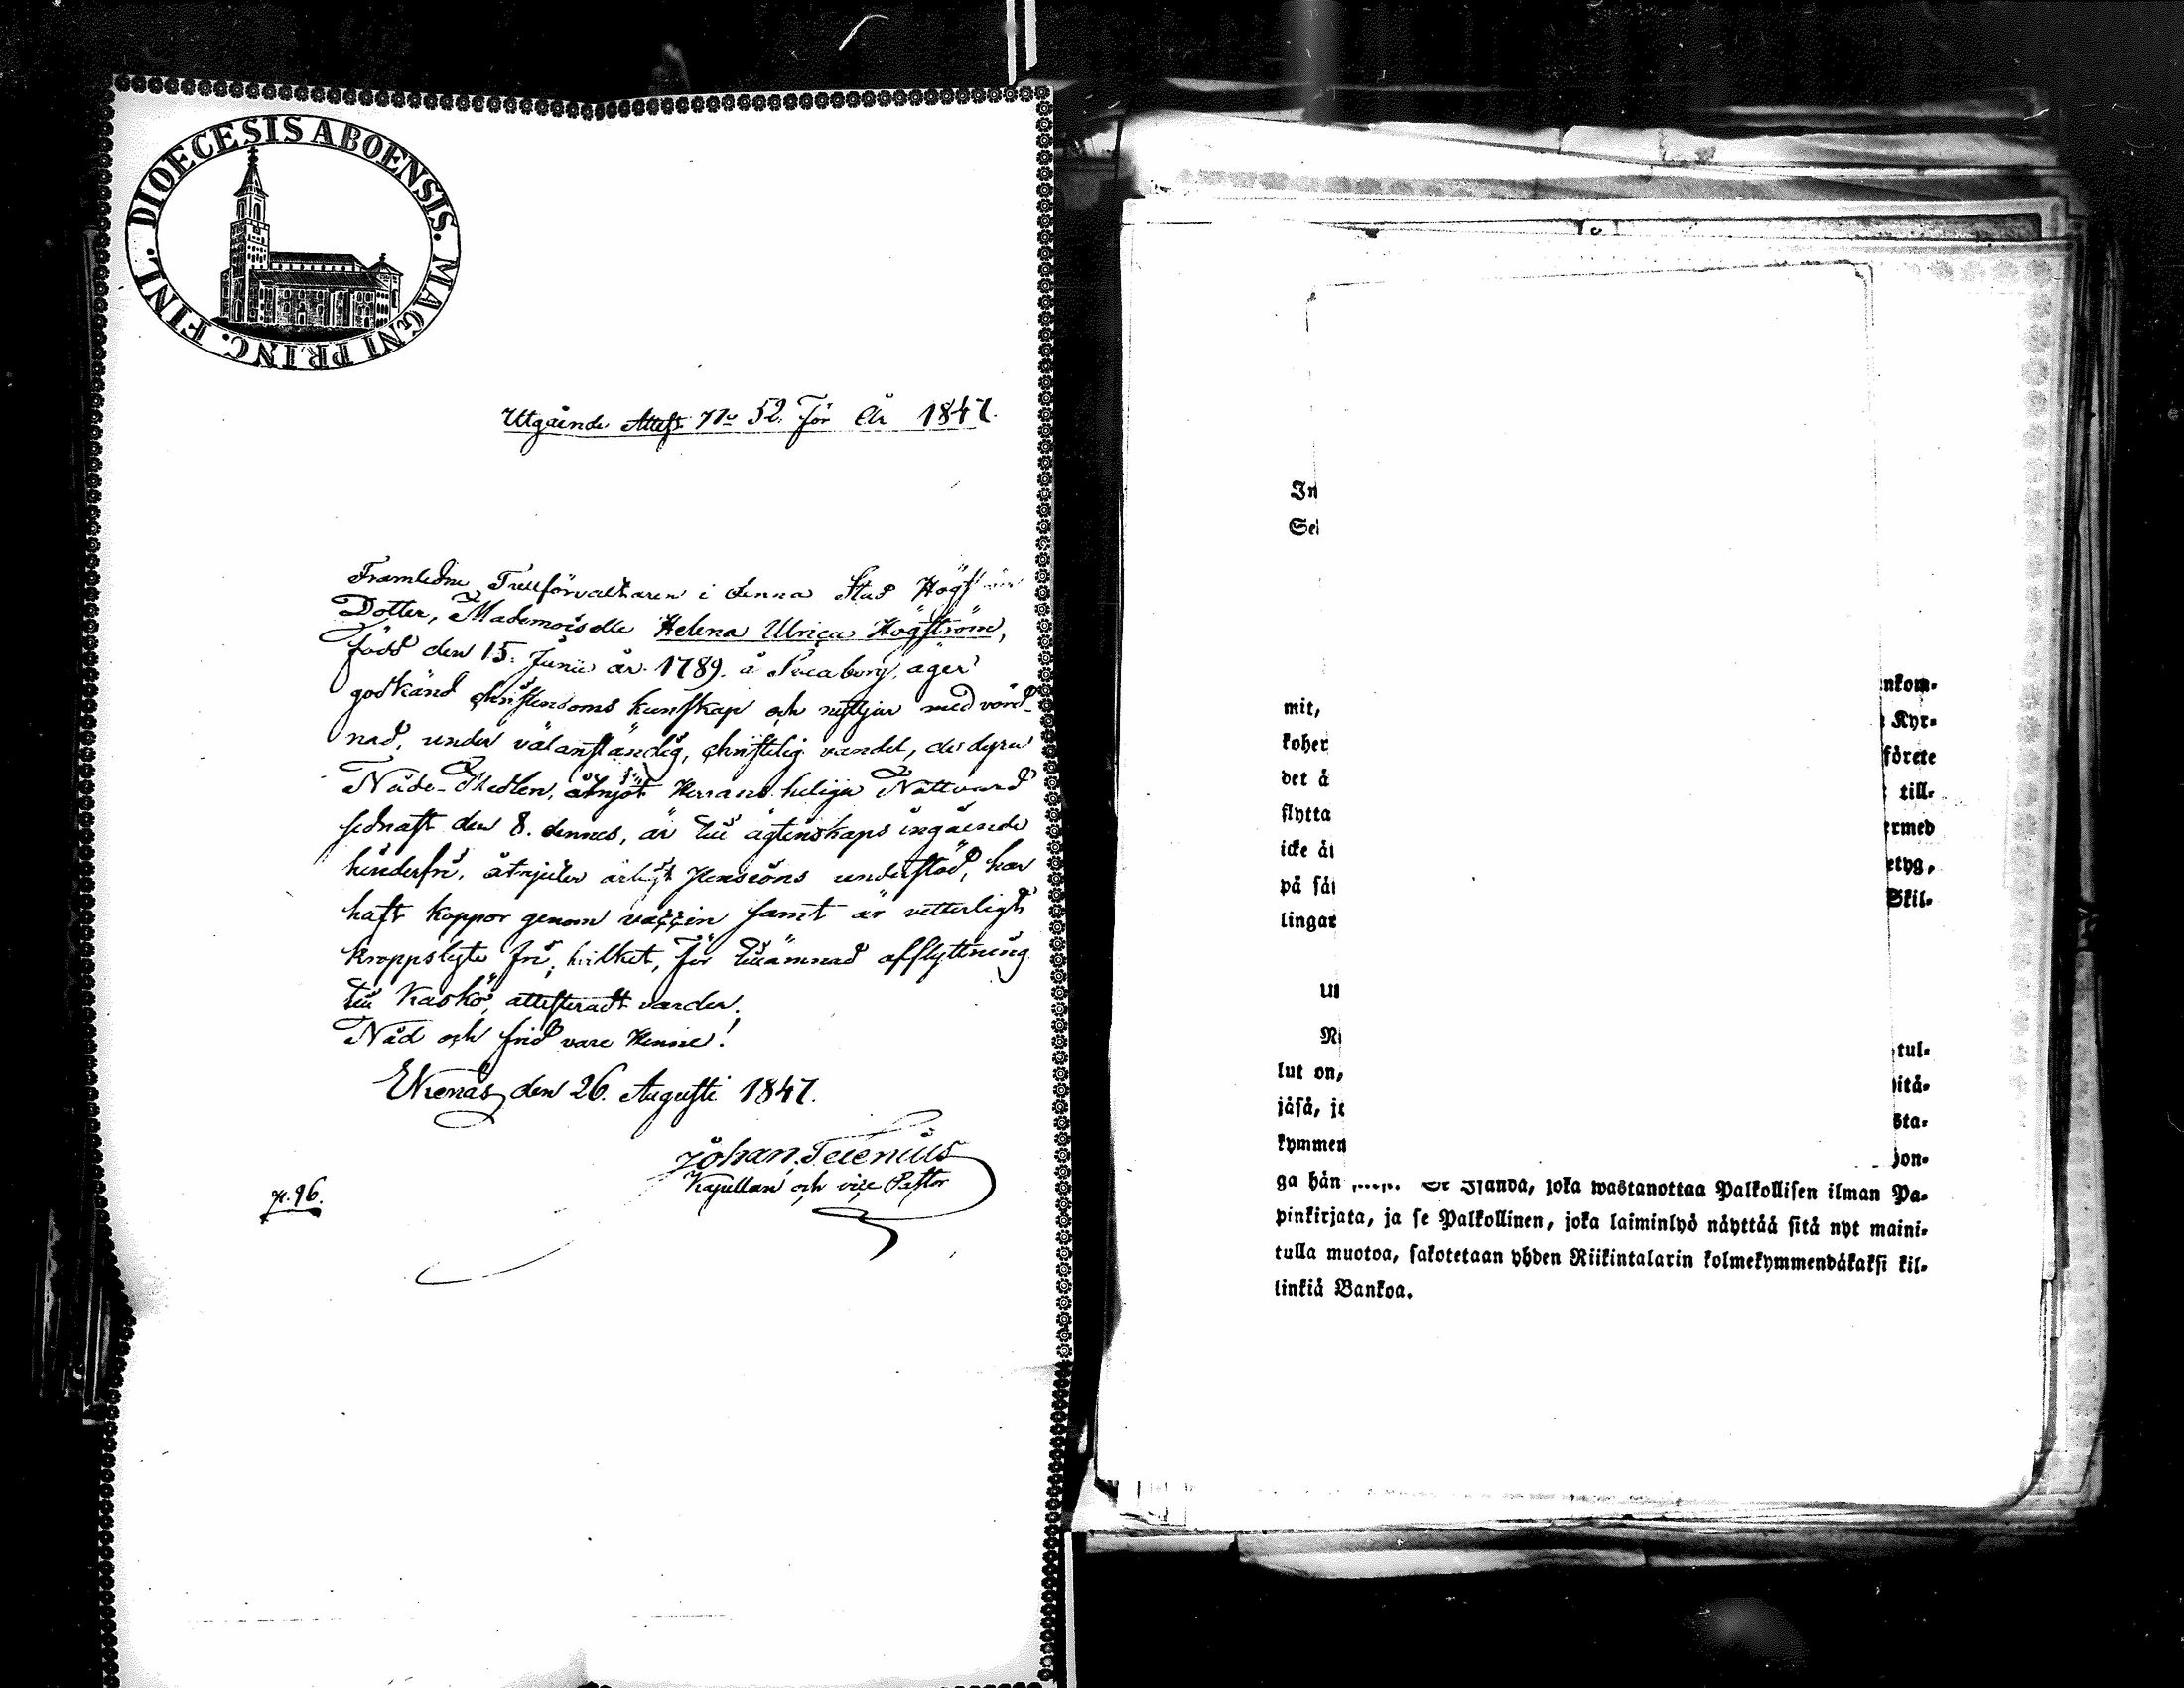 DIOECESIS ABOENSIS. MAGNI PRINC. FINL.
Utgående Attest No 52. för År 1847.
Framledne Tullförvaltaren i denna Stad
Dotter, Mademoiselle Helena Ulrica Högström,
född den 15. Junii år 1789. å Sveaborg, äger
godkänd christendoms kunskap och nyttjar med vörd-
nad, under välanständig, christelig vandel, de dyra
Nåde-Medlen, åtnjöt Herrans heliga Nattvard
sednast den 8. dennes, är till ägtenskaps ingående
hinderfri, åtnjuter årligt Pensions understöd, har
haft koppor genom vaccin samt är vetterligt
kroppslyte fri; hvilket, för tillämnad afflyttning
till Kaskö, attesteradt varder.
Nåd och frid vare Henne!
Ekenäs den 26. Augusti 1847.
Johan
Kapellan och vice Pastor
p. 96.
In
Sei
nkom-
mit, Kyr-
koher förete
det å till-
flytta ermed
icke åt etyg,
på såt Skil-
lingar
Ul
Ni tul-
lut on, itä-
jäsä, je sta-
kymmen jon-
ga hän Isändä, joka wastanottaa Palkollisen ilman Pa-
pinkirjata, ja se Palkollinen, joka laiminlyö näyttää sitä nyt maini-
tulla muotoa, sakotetaan yhden Riikintalarin kolmekymmendäkaksi kil-
linkiä Bankoa.